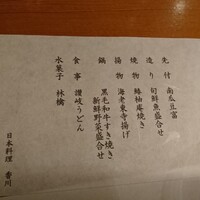 先付 南瓜豆富
造り 旬鮮魚盛合せ
焼物 鰆柚庵焼き
揚物 海老東寺揚げ
鍋 黒毛和牛すき焼き
新鮮野菜盛合せ
食事 讃岐うどん
水菓子 林檎
日本料理 香川